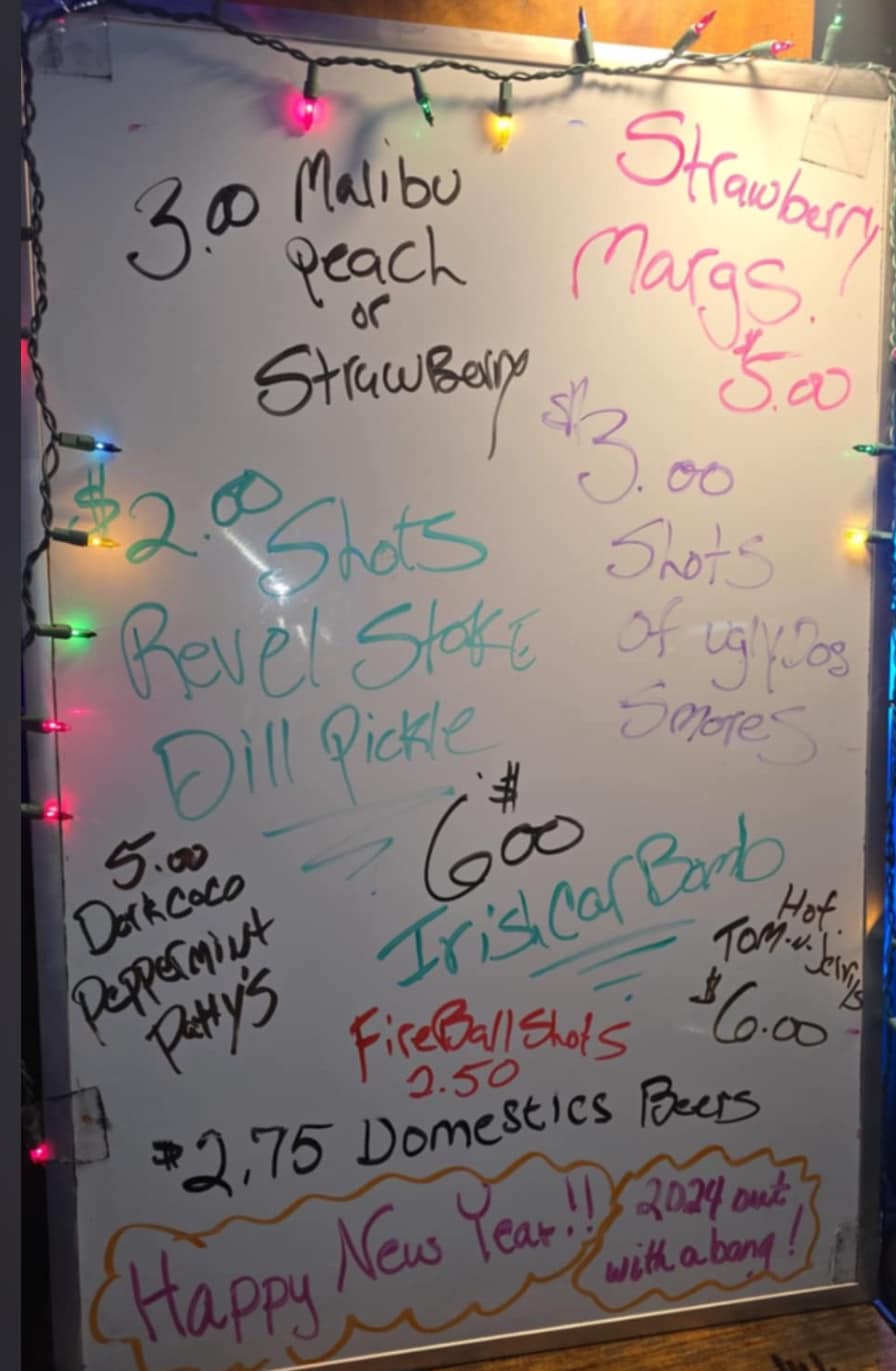 3.00 Malibu
Peach
or
StrawBerry
Strawberry
Margs.
$5.00
$2.00 Shots
Revel Stoke
Dill Pickle
$3.00
Shots
of ugly Dog
Smores
5.00
Dark coco
Peppermint
Patty's
6$00
Irish Car Bomb
Hot
Tom-n-
$6.00
FireBall Shots
2.50
$2.75 Domestics Beers
Happy New Year!!
2024 out
with a bang!